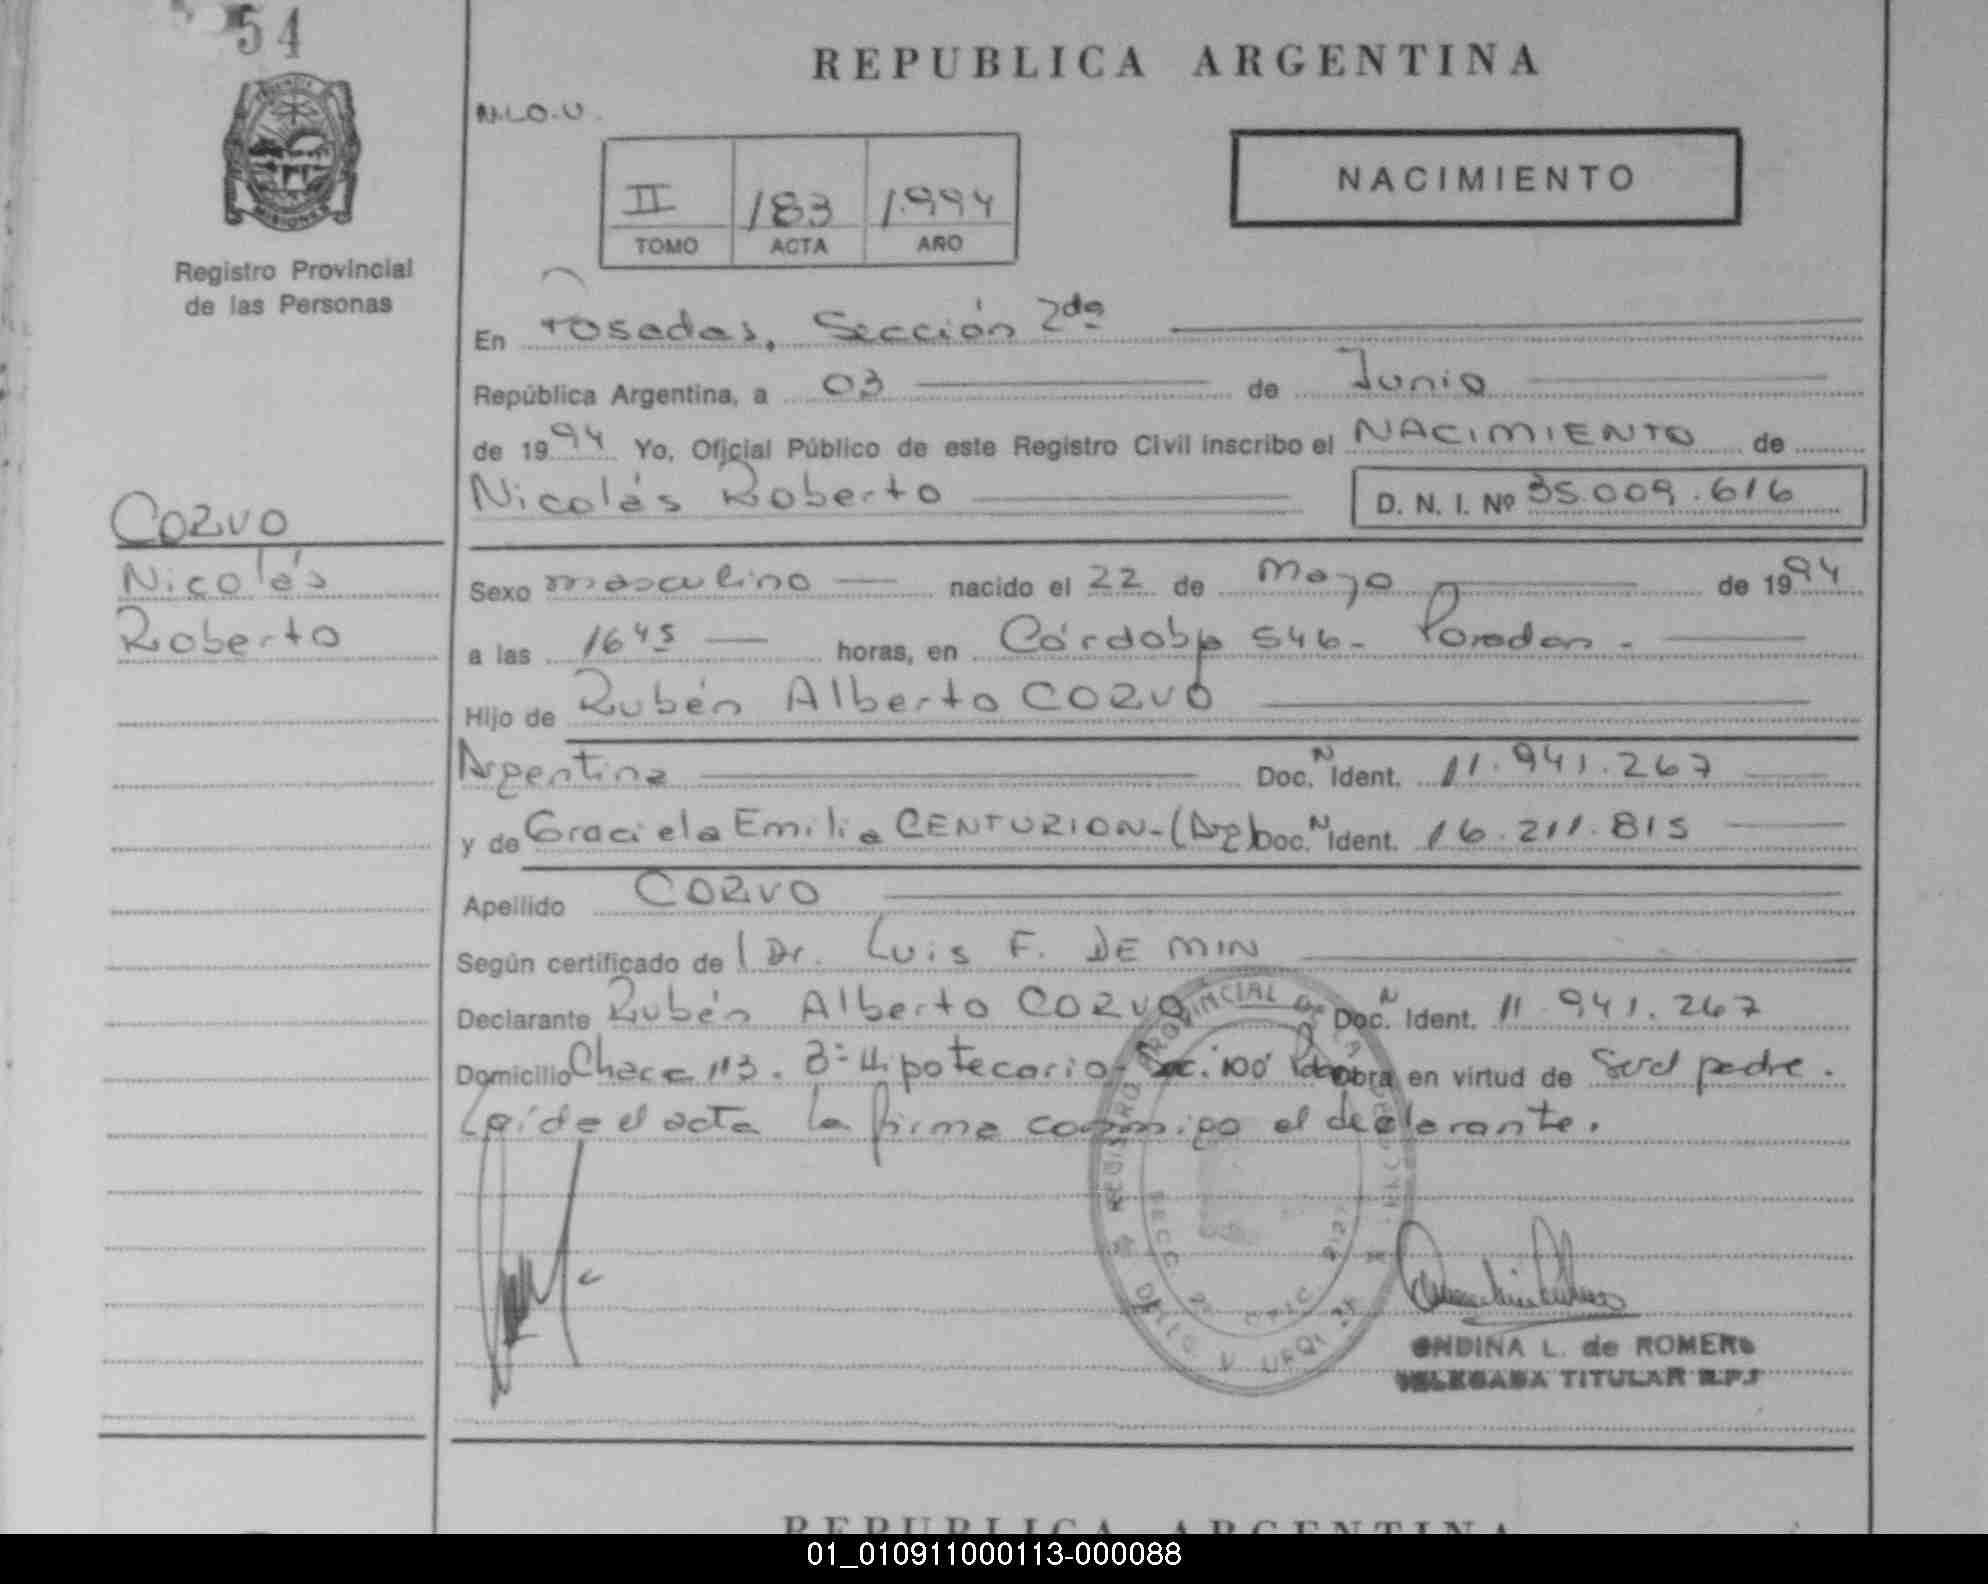 54
REPUBLICA ARGENTINA
N.L.O.U.
NACIMIENTO
II 183 1.994
TOMO ACTA AÑO
Registro Provincial
de las Personas
En Posadas, Sección 2da
República Argentina, a 03 de Junio
de 1994 Yo, Oficial Público de este Registro Civil inscribo el NACIMIENTO de
Nicolás Roberto D. N. I. Nº 35.009.616
CORVO
Nicolás
Roberto
Sexo masculino nacido el 22 de Mayo de 1994
a las 16 45 horas, en Córdoba 546- Posadas -
Hijo de Rubén Alberto CORVO
Argentina Doc. N Ident. 11.941.267
y de Graciela Emilia CENTURION-(Arg) Doc. N Ident. 16.211.815
Apellido CORVO
Según certificado de l Dr. Luis F. DE MIN
Declarante Rubén Alberto CORVO Doc. N Ident. 11.941.267
Domicilio Chacra 113. Bº Hipotecario 100 Obra en virtud de Ser el padre.
Leída el acta la firma conmigo el declarante.
REGISTRO PROVINCIAL DE LAS PERSONAS
SECC 2a
ONDINA L. de ROMERO
DELEGADA TITULAR R.P.P
REPUBLICA ARGENTINA
01_010911000113-000088